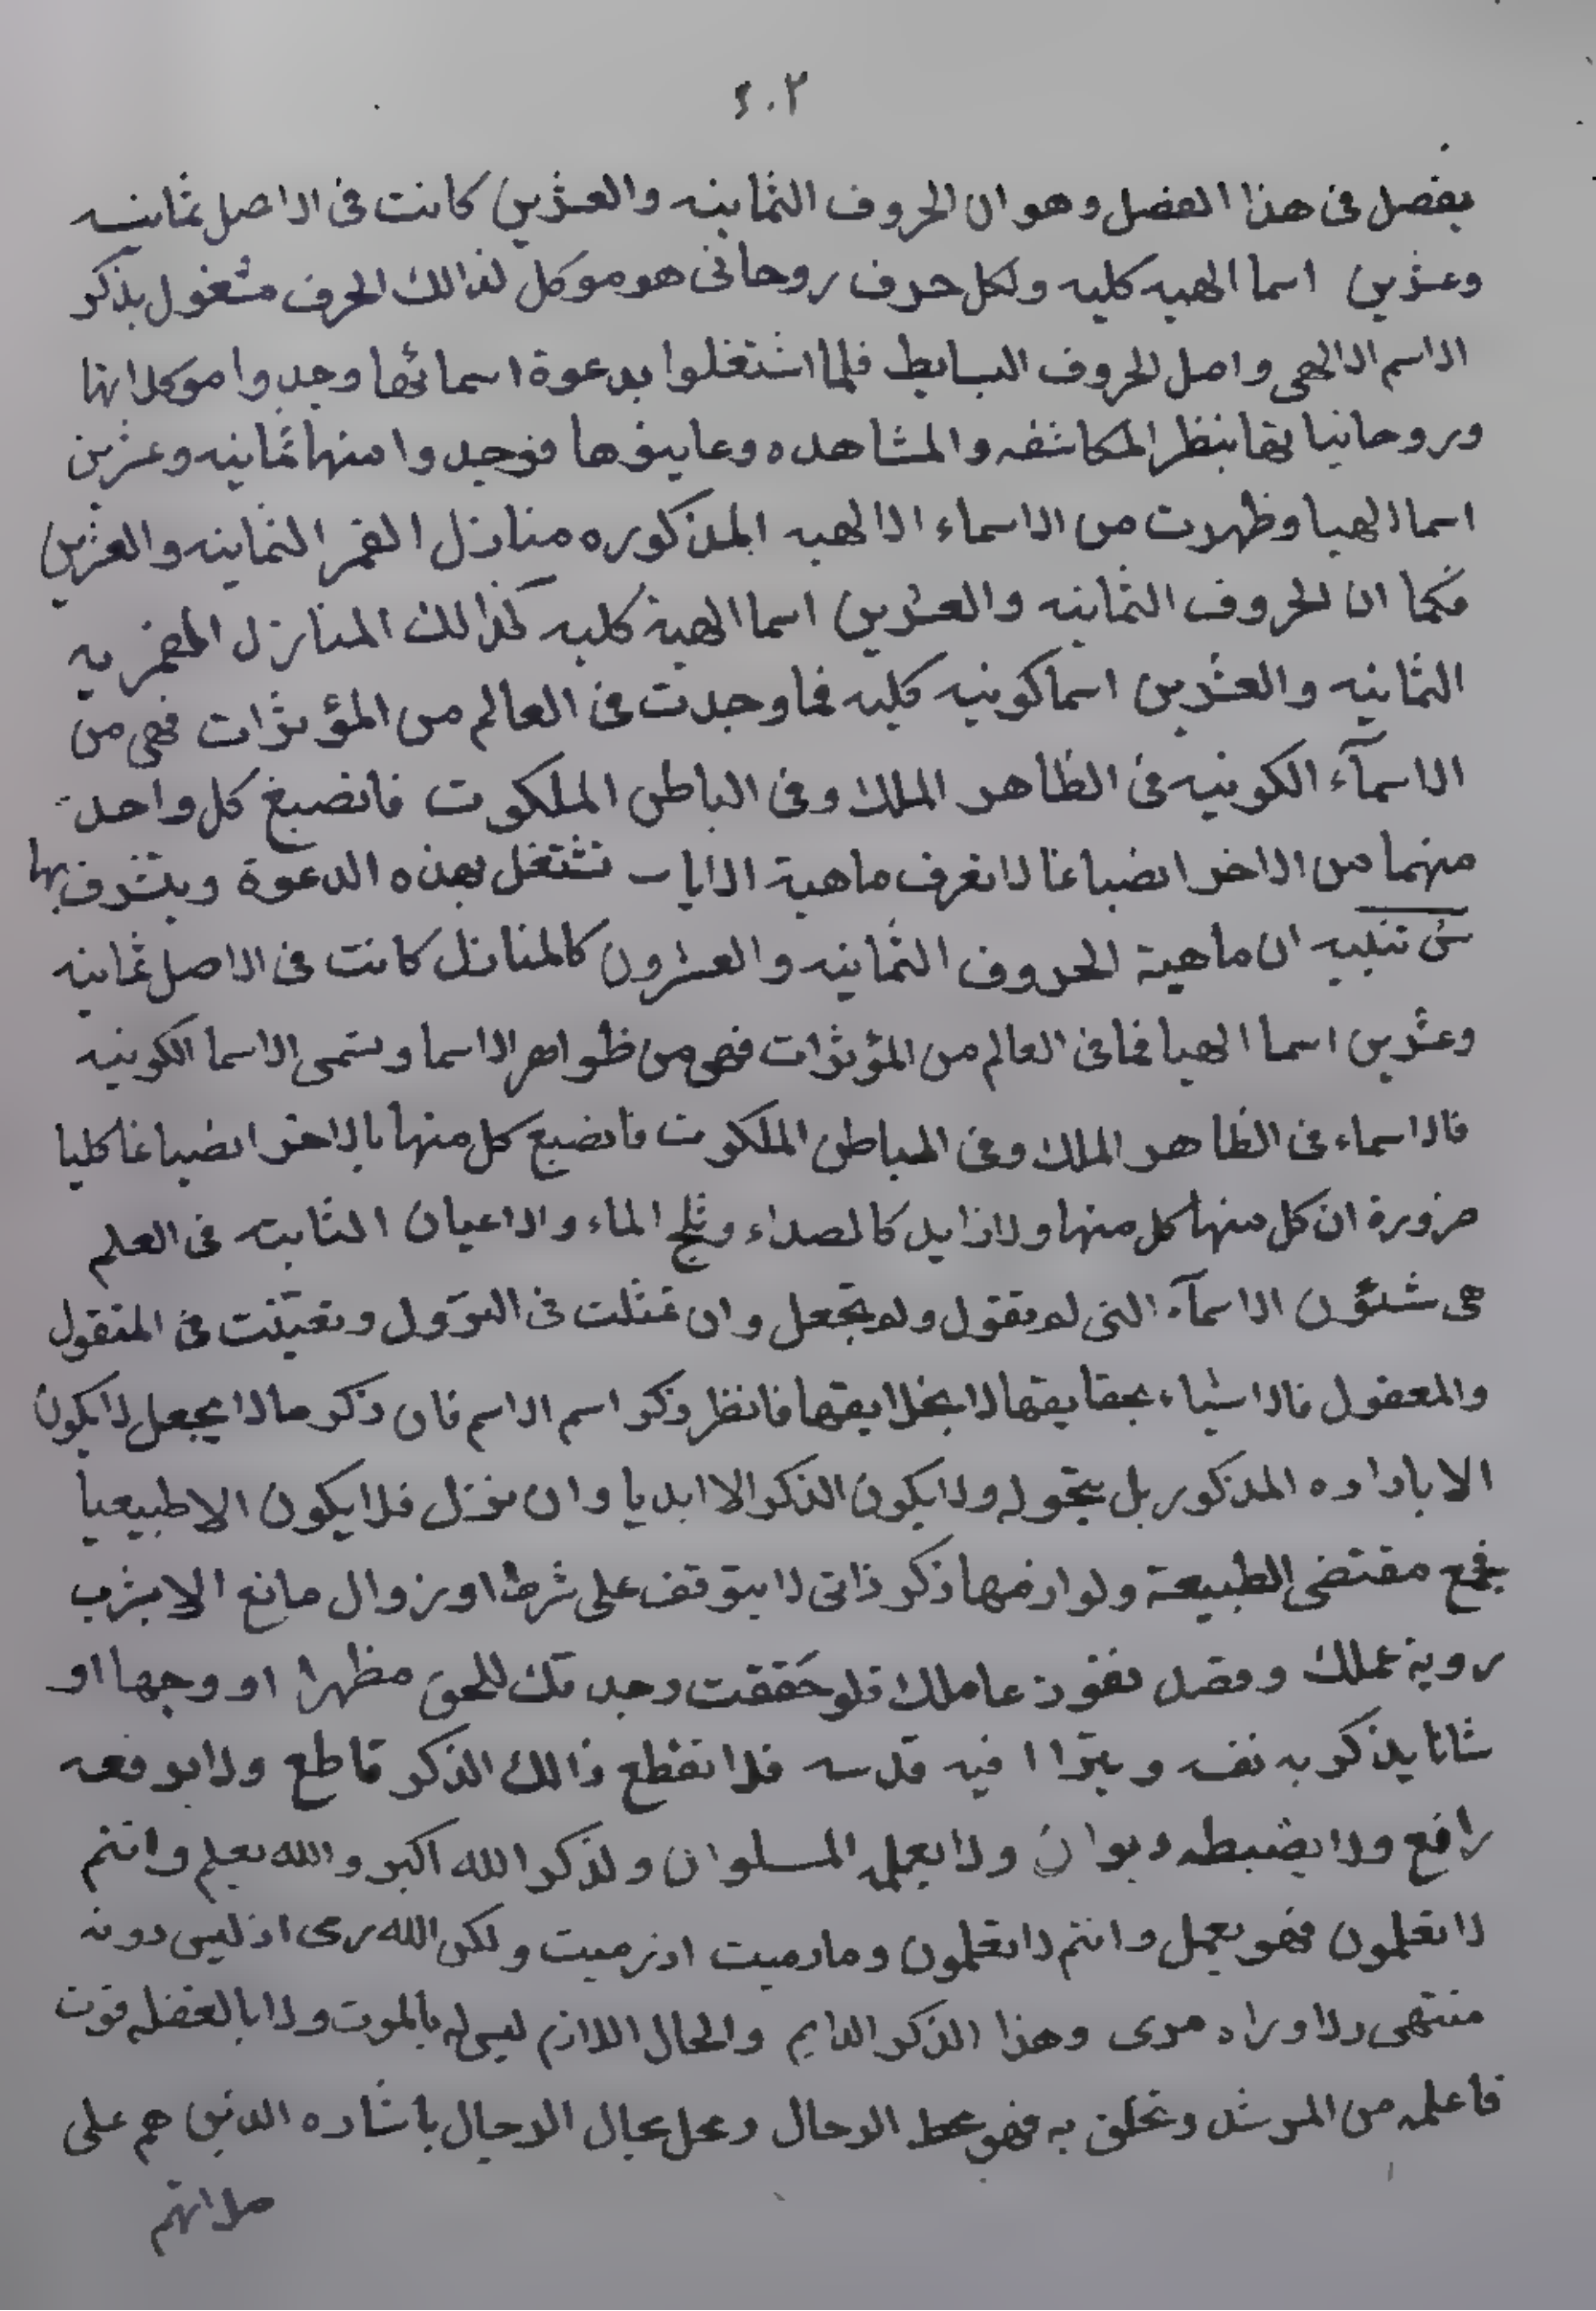 ٤٠٢
يفصل فى هذا الفصل وهو ان الحروف الثمانيه والعشرين كانت فى الاصل ثمانيه
وعشرين اسما الهيه كليه ولكل حرف روحانى هو موكل لذالك الحرف مشغول بذكر
الاسم الالهى واصل الحروف البسايط فلما اشتغلوا بدعوة اسمائها وجدوا موكلاتها
وروحانياتها بنظر المكاشفه والمشاهده وعاينوها فوجدوا منها ثمانيه وعشرين
اسما الهيا وظهرت من الاسماء الالهيه المذكوره منازل القمر الثمانيه والعشرين
فكما ان الحروف الثمانيه والعشرين اسما الهية كليه كذالك المنازل القمريه
الثمانيه والعشرين اسما كونيه كليه فما وجدت فى العالم من المؤثرات فهى من
الاسمآء الكونيه فى الظاهر الملك وفى الباطن الملكوت فانصبغ كل واحد
منهما من الاخر انصباغا لا تعرف ماهية الايات تشتغل بهذه الدعوة ويتشرف بها
ش تنبيه ان ماهية الحروف الثمانيه والعشرون كالمنازل كانت فى الاصل ثمانيه
وعشرين اسما الهيا فما فى العالم من المؤثرات فهى من ظواهر الاسما وتسمى الاسما الكونيه
فالاسماء فى الظاهر الملك وفى الباطن الملكوت فانصبغ كل منها بالاخر انصباغا كليا
ضرورة ان كل منها كل منها ولا زايد كالصداء وثلج الماء والاعيان الثابته فى العلم
هى شئون الاسمآء التى لم تقول ولم تجعل وان تمثلت فى النزول وتعينت فى المنقول
والمعقول فالاشياء بحقايقها لا بخلايقها فانظر ذكر اسم الاسم فان ذكر ما لا يجعل لا يكون
الا باداده المذكور بل بتحوله ولا يكون الذكر الا ابديا وان نزل فلا يكون الا طبيعيا
مقتضى الطبيعة ولوازمها ذكر ذاتى لا يتوقف على شرط او زوال مانع الا بشرب
روية عملك وفضل نفوذ عاملك فلو حققت وجدتك للحق مظهرا او وجها او
شانا يذكر به نفسه ويترا ا فيه قدسه فلا تقطع ذالك الذكر قاطع ولا يرفعه
رافع ولا يضبطه ديوان ولا يعمله المسلوان ولذكر الله اكبر والله يعلم وانتم
لا تعلمون فهو يعمل وانتم لا تعلمون وما رميت اذ رميت ولكن الله رمى اذ ليس دونه
منتهى ولا وراه مرمى وهذا الذكر الدايم والحال اللازم ليس له بالموت ولا بالغفله فوت
فاعلمه من المرشد وتخلق به فهو محط الرحال ومحل مجال الرجال باشاره الذين هم على
صلاتهم